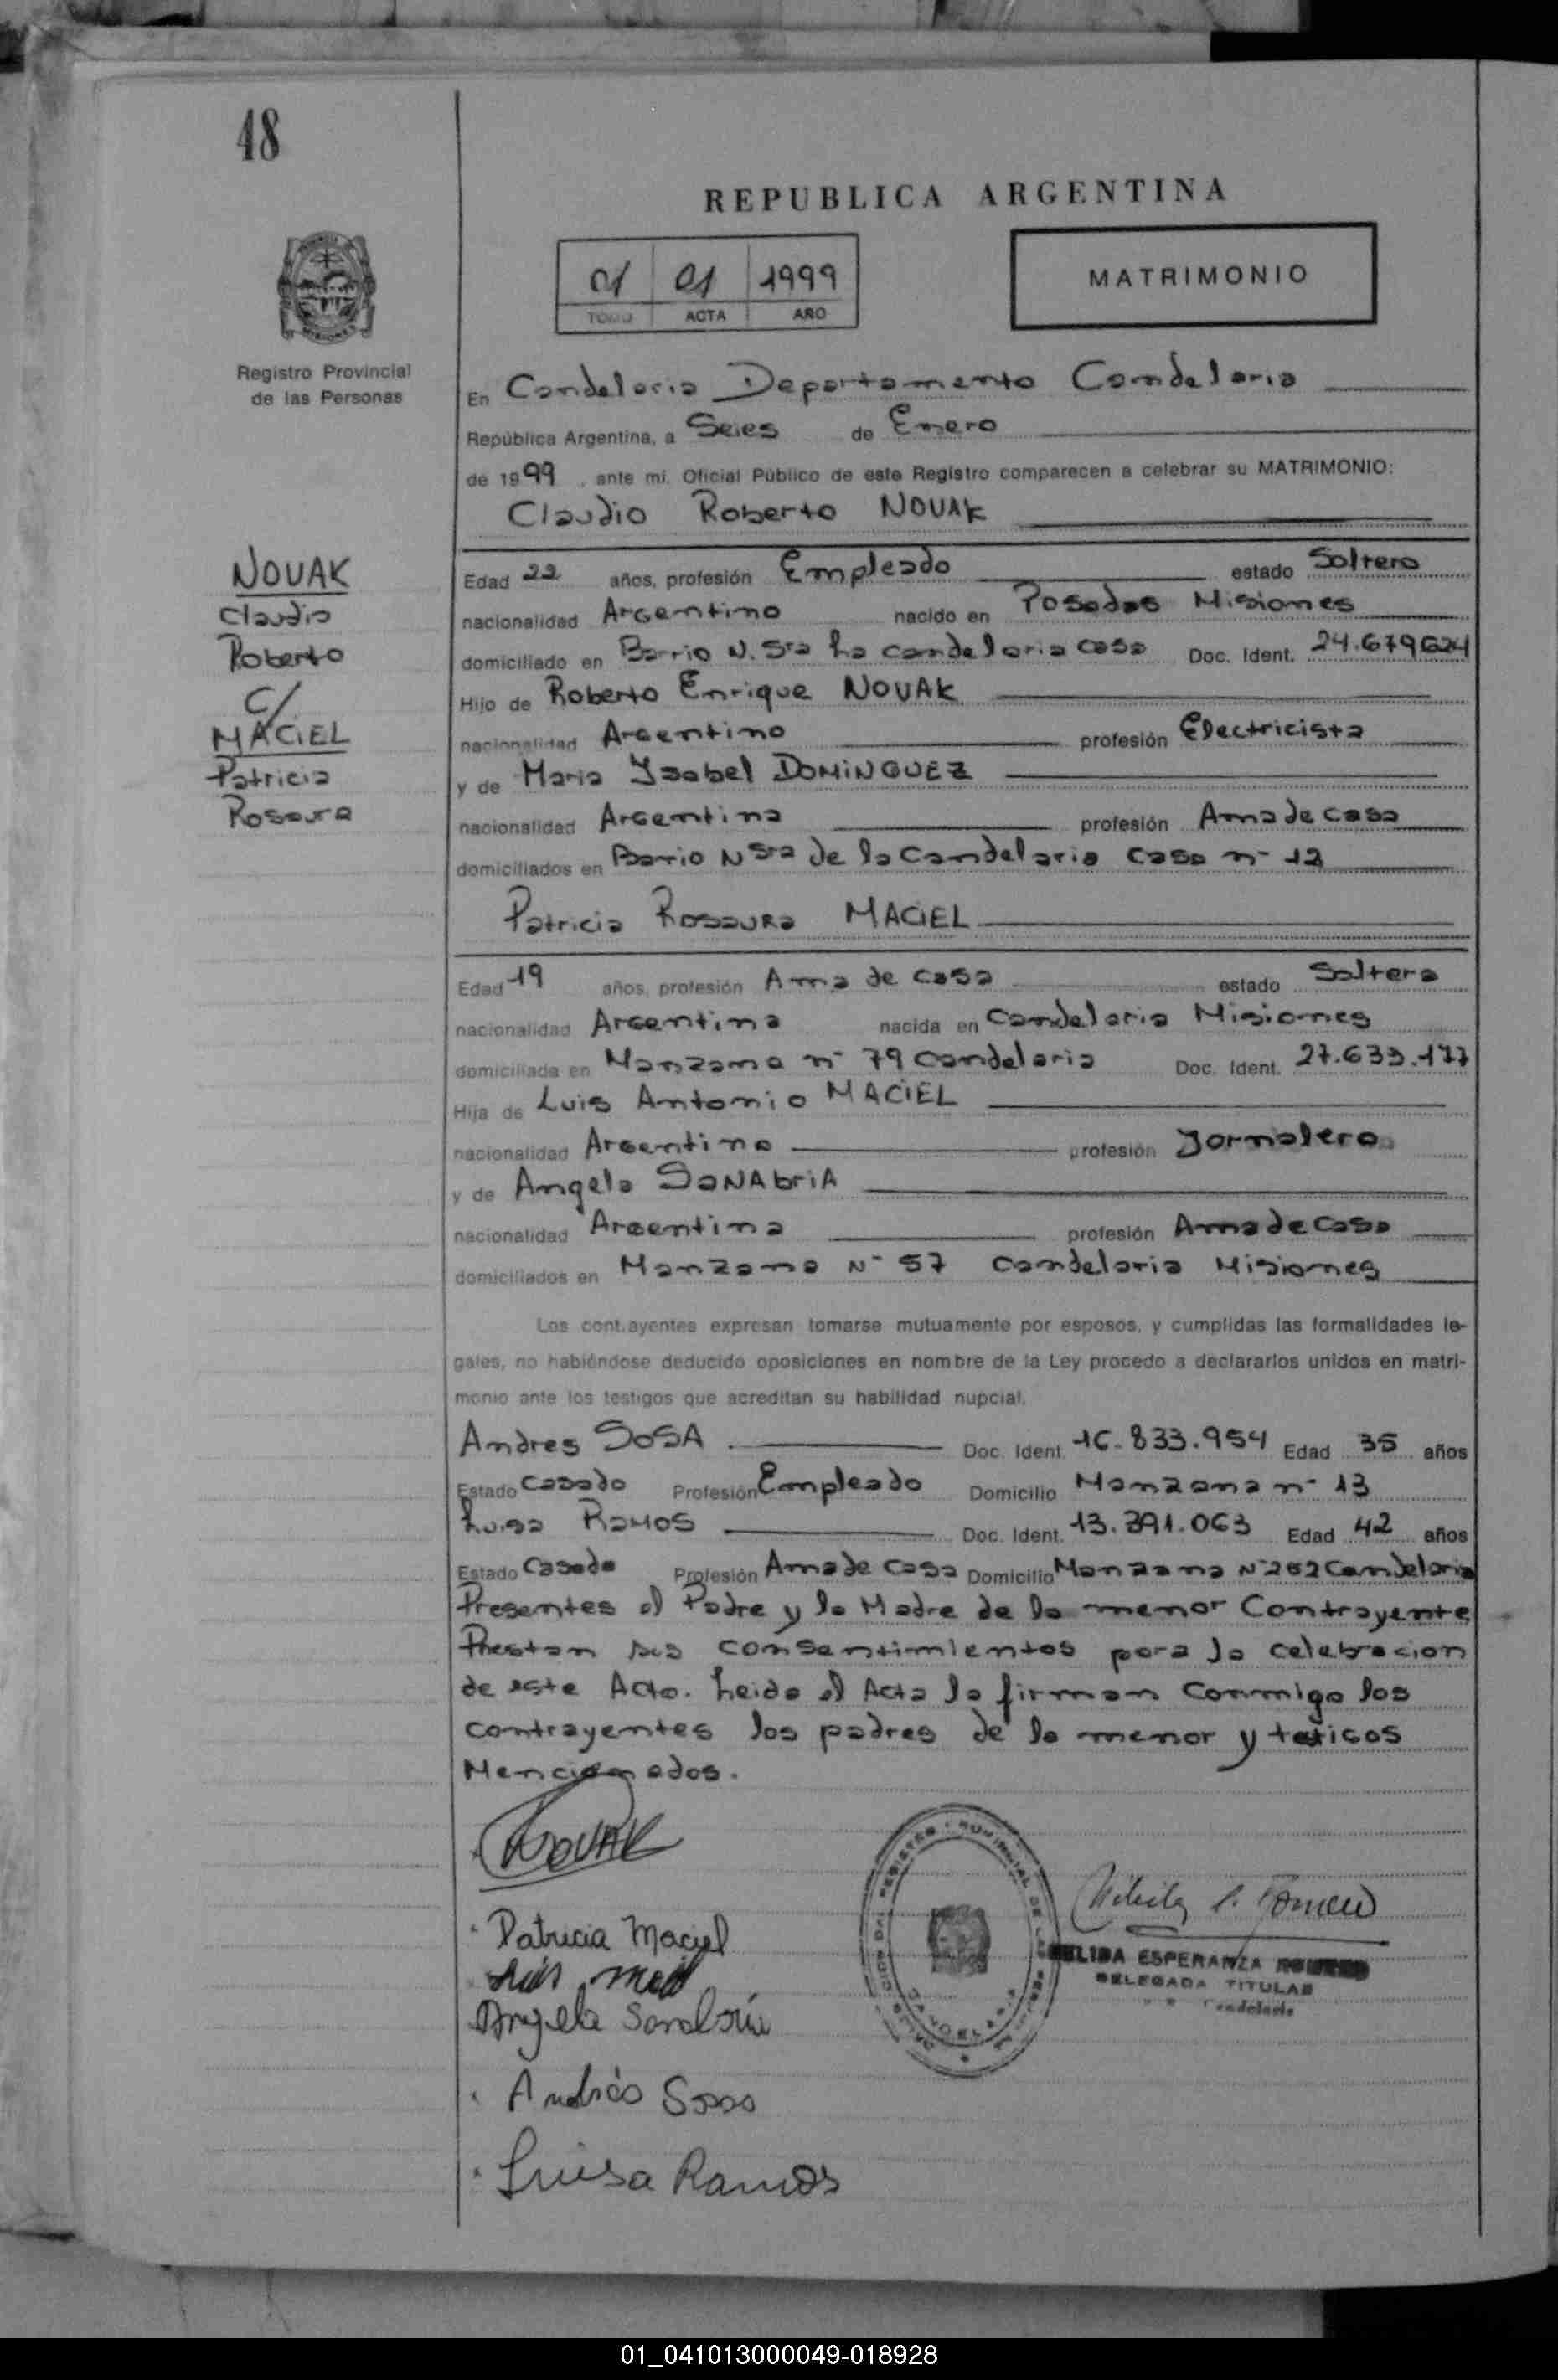 48
REPUBLICA ARGENTINA
01 01 1999
TOMO ACTA AÑO
MATRIMONIO
Registro Provincial
de las Personas
En Candelaria Departamento Candelaria
República Argentina, a Seies de Enero
de 1999, ante mí, Oficial Público de este Registro comparecen a celebrar su MATRIMONIO:
Claudio Roberto NOVAK
NOVAK
Claudio
Roberto
C/
MACIEL
Patricia
Rosaura
Edad 22 años, profesión Empleado estado Soltero
nacionalidad Argentino nacido en Posadas Misiones
domiciliado en Barrio N. Sra La candelaria casa Doc. Ident. 24.679624
Hijo de Roberto Enrique NOVAK
nacionalidad Argentino profesión Electricista
y de Maria Ysabel DOMINGUEZ
nacionalidad Argentina profesión Ama de casa
domiciliados en Barrio Nsra de la Candelaria casa n- 12
Patricia Rosaura MACIEL
Edad 19 años, profesión Ama de casa estado Soltera
nacionalidad Argentina nacida en Candelaria Misiones
domiciliada en Manzana n- 79 Candelaria Doc. Ident. 27.633.177
Hija de Luis Antonio MACIEL
nacionalidad Argentino profesión Jornalero
y de Angela SANAbriA
nacionalidad Argentina profesión Ama de Casa
domiciliados en Manzana N- 57 Candelaria Misiones
Los contrayentes expresan tomarse mutuamente por esposos, y cumplidas las formalidades le-
gales, no habiéndose deducido oposiciones en nombre de la Ley procedo a declararlos unidos en matri-
monio ante los testigos que acreditan su habilidad nupcial.
Andres SOSA Doc. Ident. 16.833.954 Edad 35 años
Estado Casado Profesión Empleado Domicilio Manzana n- 13
Luisa RAMOS Doc. Ident. 13.391.063 Edad 42 años
Estado Casada Profesión Ama de Casa Domicilio Manzana N-252 Candelaria
Presentes el Padre y la Madre de la menor Contrayente
Prestan sus consentimientos para la celebracion
de este Acto. Leida el Acta la firman Conmigo los
contrayentes los padres de la menor y testigos
Mencionados.
NOVAK
Patricia Maciel
Luis
Angela Sanabria
Andrés Sosa
Luisa Ramos
ESPERANZA
DELEGADA TITULAR
Candelaria
01_041013000049-018928